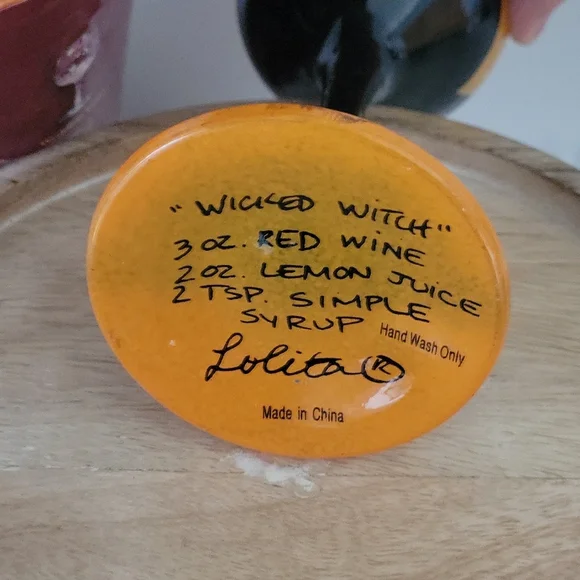 "WICKED WITCH"
3 OZ. RED WINE
2 OZ. LEMON JUICE
2 TSP. SIMPLE
SYRUP
Hand Wash Only
Lolita®
Made in China